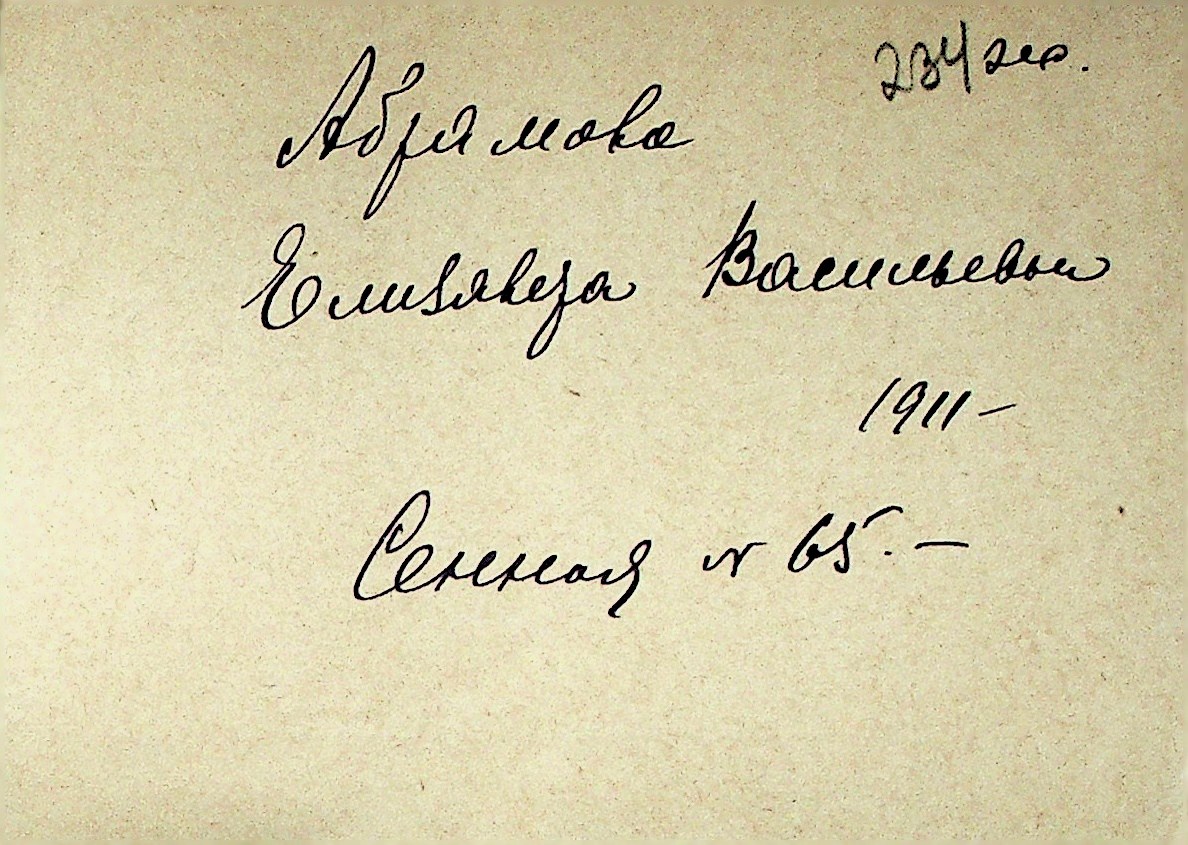 234
Абрамова
Елизавета Васильевна
1911 –
Сенная № 65. –